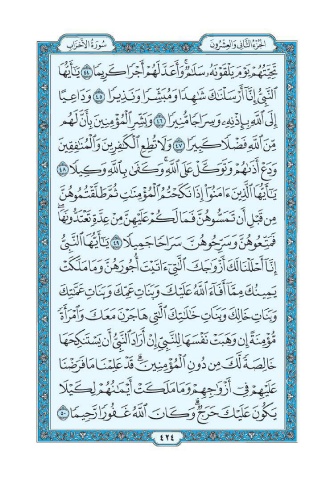 الجزء الثاني والعشرون
سورة الأحزاب
تَحِيَّتُهُمْ يَوْمَ يَلْقَوْنَهُ سَلَٰمٌ وَأَعَدَّ لَهُمْ أَجْرًا كَرِيمًا ٤٤ يَٰٓأَيُّهَا
ٱلنَّبِيُّ إِنَّآ أَرْسَلْنَٰكَ شَٰهِدًا وَمُبَشِّرًا وَنَذِيرًا ٤٥ وَدَاعِيًا
إِلَى ٱللَّهِ بِإِذْنِهِۦ وَسِرَاجًا مُّنِيرًا ٤٦ وَبَشِّرِ ٱلْمُؤْمِنِينَ بِأَنَّ لَهُم
مِّنَ ٱللَّهِ فَضْلًا كَبِيرًا ٤٧ وَلَا تُطِعِ ٱلْكَٰفِرِينَ وَٱلْمُنَٰفِقِينَ
وَدَعْ أَذَىٰهُمْ وَتَوَكَّلْ عَلَى ٱللَّهِ وَكَفَىٰ بِٱللَّهِ وَكِيلًا ٤٨
يَٰٓأَيُّهَا ٱلَّذِينَ ءَامَنُوٓا۟ إِذَا نَكَحْتُمُ ٱلْمُؤْمِنَٰتِ ثُمَّ طَلَّقْتُمُوهُنَّ
مِن قَبْلِ أَن تَمَسُّوهُنَّ فَمَا لَكُمْ عَلَيْهِنَّ مِنْ عِدَّةٍ تَعْتَدُّونَهَا
فَمَتِّعُوهُنَّ وَسَرِّحُوهُنَّ سَرَاحًا جَمِيلًا ٤٩ يَٰٓأَيُّهَا ٱلنَّبِيُّ
إِنَّآ أَحْلَلْنَا لَكَ أَزْوَٰجَكَ ٱلَّٰتِىٓ ءَاتَيْتَ أُجُورَهُنَّ وَمَا مَلَكَتْ
يَمِينُكَ مِمَّآ أَفَآءَ ٱللَّهُ عَلَيْكَ وَبَنَاتِ عَمِّكَ وَبَنَاتِ عَمَّٰتِكَ
وَبَنَاتِ خَالِكَ وَبَنَاتِ خَٰلَٰتِكَ ٱلَّٰتِى هَاجَرْنَ مَعَكَ وَٱمْرَأَةً
مُّؤْمِنَةً إِن وَهَبَتْ نَفْسَهَا لِلنَّبِىِّ إِنْ أَرَادَ ٱلنَّبِىُّ أَن يَسْتَنكِحَهَا
خَالِصَةً لَّكَ مِن دُونِ ٱلْمُؤْمِنِينَ قَدْ عَلِمْنَا مَا فَرَضْنَا
عَلَيْهِمْ فِىٓ أَزْوَٰجِهِمْ وَمَا مَلَكَتْ أَيْمَٰنُهُمْ لِكَيْلَا
يَكُونَ عَلَيْكَ حَرَجٌ وَكَانَ ٱللَّهُ غَفُورًا رَّحِيمًا ٥٠
٤٢٤